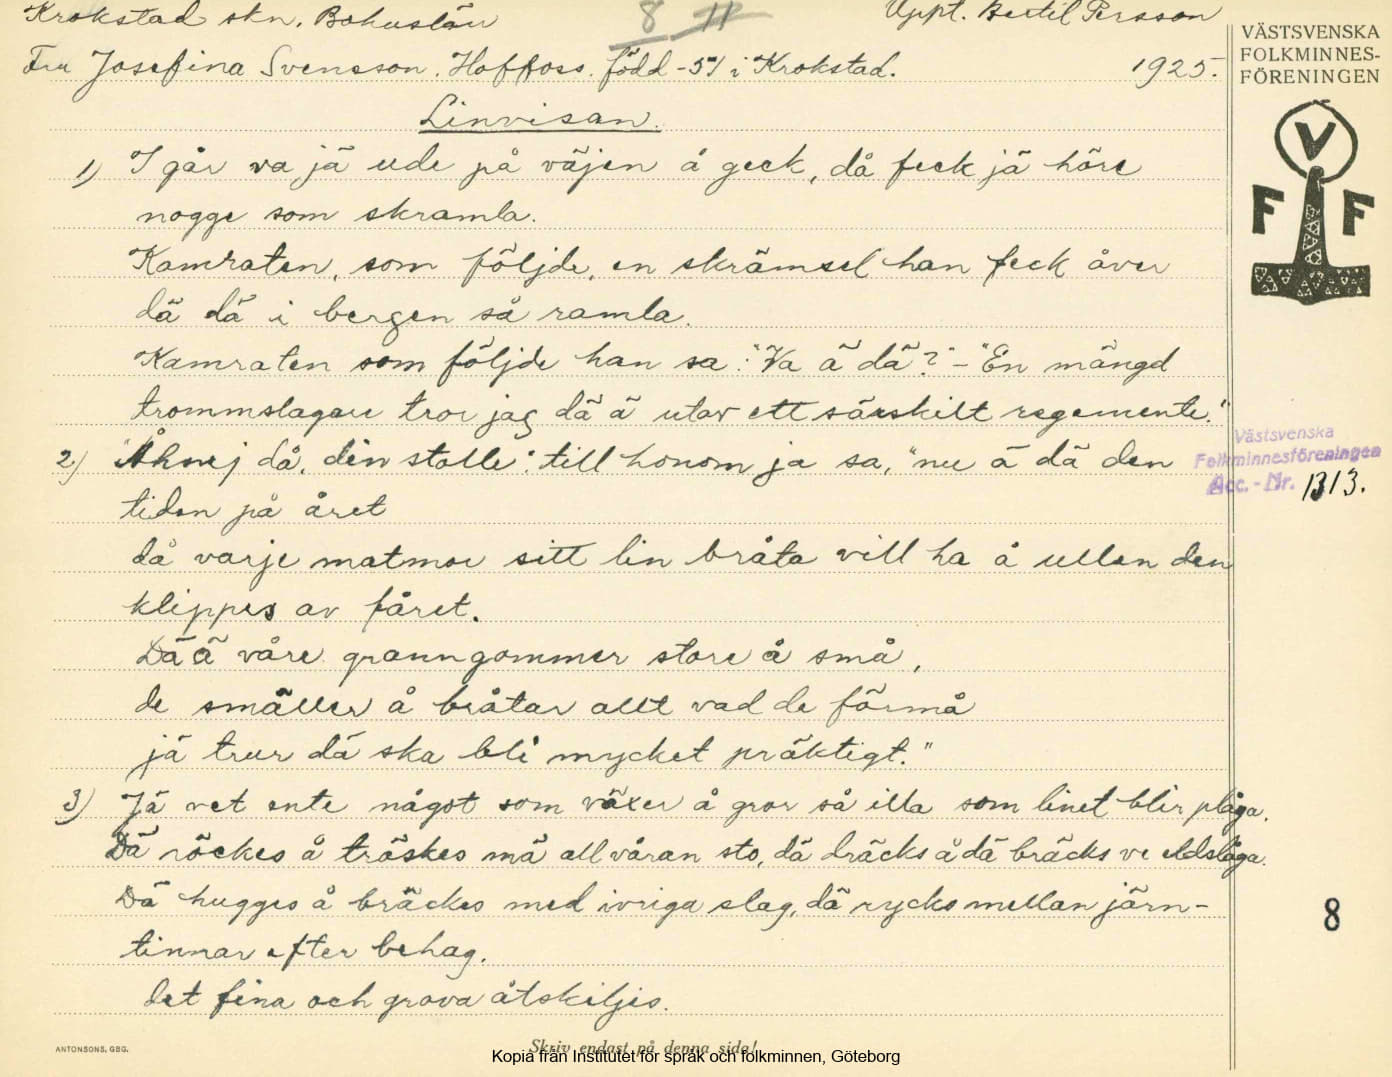 Krokstad skn. Bohuslän
8 11
Uppt. Bertil Persson
VÄSTSVENSKA
FOLKMINNES-
FÖRENINGEN
Fru Josefina Svensson, Hoffoss. född -51 i Krokstad.
1925.
Linvisan.
V
F F
1) I går va jä ude på väjen å geck, då feck jä höre
nogge som skramla.
Kamraten, som följde, en skrämsel han feck åver
dä dä i bergen så ramla.
Kamraten som följde han sa: "Va ä dä?" - "En mängd
trommslagare tror jag dä ä utav ett särskilt regemente."
2) "Åhnej då, din stolle" till honom ja sa, "nu ä dä den
tiden på året
då varje matmor sitt lin bråta vill ha å ullen den
klippes av fåret.
Dä ä våre granngommer store å små,
de smäller å bråtar allt vad de förmå
jä trur dä ska bli mycket präktigt."
Västsvenska
Folkminnesföreningen
Acc. - Nr. 1313.
3) Jä vet ente något som växer å gror så illa som linet blir plåga.
Dä röckes å träskes mä all våran sto, dä dräcks å dä bräcks ve eldslåga.
Dä hugges å bräckes med ivriga slag, dä rycks mellan järn-
tinnar efter behag.
det fina och grova åtskiljes.
8
ANTONSONS, GBG.
Skriv endast på denna sida!
Kopia från Institutet för språk och folkminnen, Göteborg